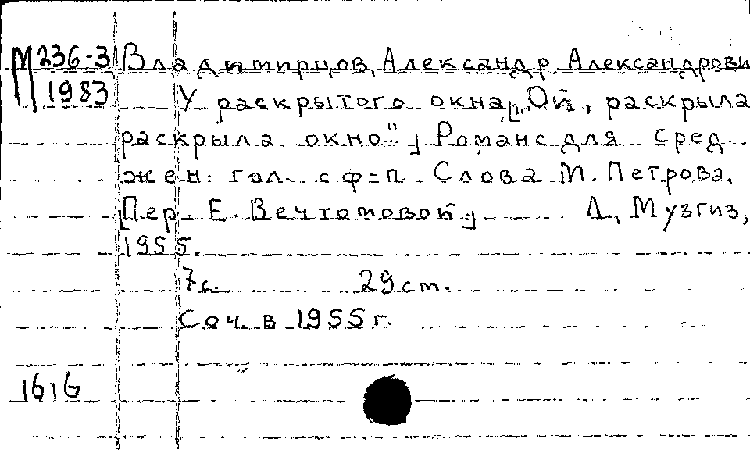 М 236-3 Владимирцов, Александр Александрови
1983 У раскрытого окна ["Ой, раскрыла
раскрыла окно"] Романс для сред.
жен. гол. с ф-п. Слова М. Петрова.
Пер. Е. Вечтомовой. Л., Музгиз,
1955.
7 с. 29 cm.
Соч. в 1955 г.
1616